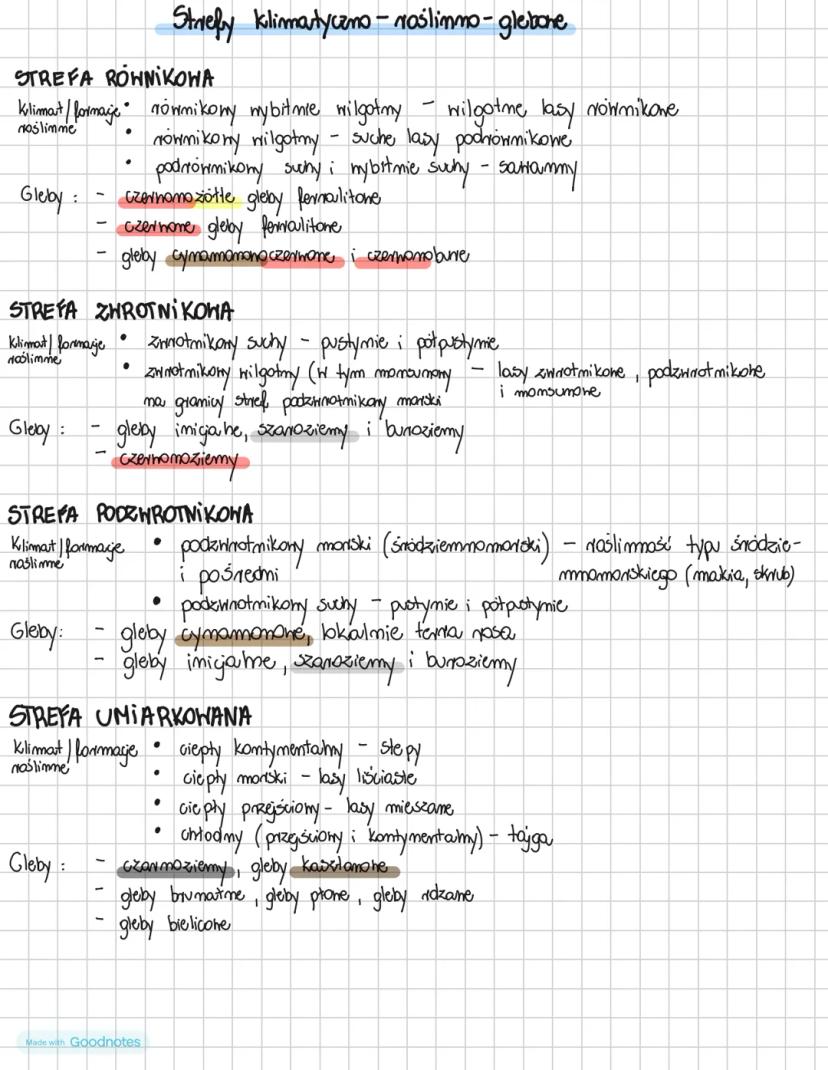 Strefy klimatyczno-roślinno-glebowe
STREFA RÓWNIKOWA
Klimat/formacje roślinne • równikowy wybitnie wilgotny - wilgotne lasy równikowe
• równikowy wilgotny - suche lasy podrównikowe
• podrównikowy suchy i wybitnie suchy - sawanny
Gleby: - czerwonożółte gleby ferralitowe
- czerwone gleby ferralitowe
- gleby cynamonowoczerwone i czerwonobure
STREFA ZWROTNIKOWA
Klimat/formacje roślinne • zwrotnikowy suchy - pustynie i półpustynie
• zwrotnikowy wilgotny (w tym monsunowy - lasy zwrotnikowe, podzwrotnikowe
na granicy stref podzwrotnikowy morski i monsunowe
Gleby: - gleby inicjalne, szaroziemy i buroziemy
- czerwonoziemy
STREFA PODZWROTNIKOWA
Klimat/formacje roślinne • podzwrotnikowy morski (śródziemnomorski) - roślinność typu śródzie-
i pośredni mnomorskiego (makia, skrub)
• podzwrotnikowy suchy - pustynie i półpustynie
Gleby: - gleby cynamonowe, lokalnie terra rosa
- gleby inicjalne, szaroziemy i buroziemy
STREFA UMIARKOWANA
Klimat/formacje roślinne • ciepły kontynentalny - stepy
• ciepły morski - lasy liściaste
• ciepły przejściowy - lasy mieszane
• chłodny (przejściowy i kontynentalny) - tajga
Gleby: - czarnoziemy, gleby kasztanowe
- gleby brunatne, gleby płowe, gleby rdzawe
- gleby bielicowe
Made with Goodnotes